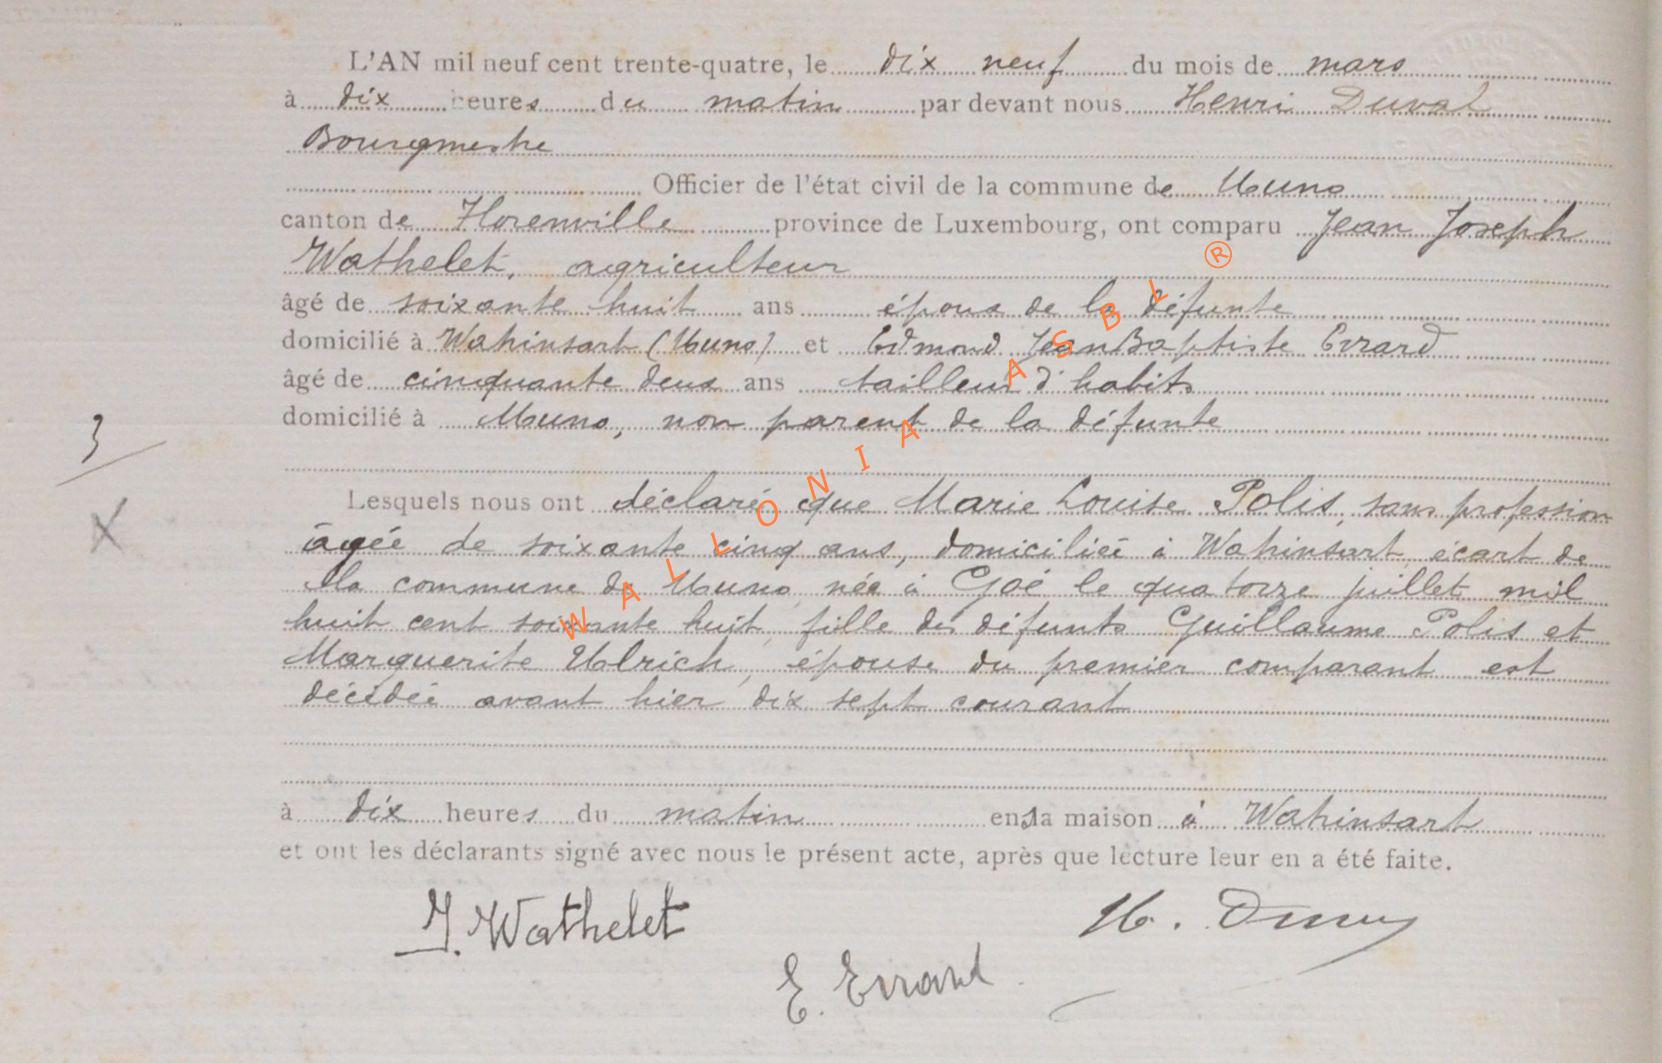 L'AN mil neuf cent trente-quatre, le dix neuf du mois de mars
à dix heures du matin par devant nous Henri Duval
Bourgmestre
Officier de l'état civil de la commune de Muno
canton de Florenville province de Luxembourg, ont comparu Jean Joseph
Wathelet, agriculteur
âgé de soixante huit ans époux de la défunte
domicilié à Wahinsart (Muno) et Edmond Jean Baptiste Evrard
âgé de cinquante deux ans tailleur d'habits
domicilié à Muno, non parent de la défunte
3
Lesquels nous ont déclaré que Marie Louise Polis, sans profession
âgée de soixante cinq ans, domiciliée à Wahinsart, écart de
la commune de Muno, née à Goé le quatorze juillet mil
huit cent soixante huit, fille des défunts Guillaume Polis et
Marguerite Ulrich, épouse du premier comparant est
décédée avant hier dix sept courant
à dix heures du matin en sa maison à Wahinsart
et ont les déclarants signé avec nous le présent acte, après que lecture leur en a été faite.
J. Wathelet
H. Duval
E. Evrard
WALLONIA ASBL ®